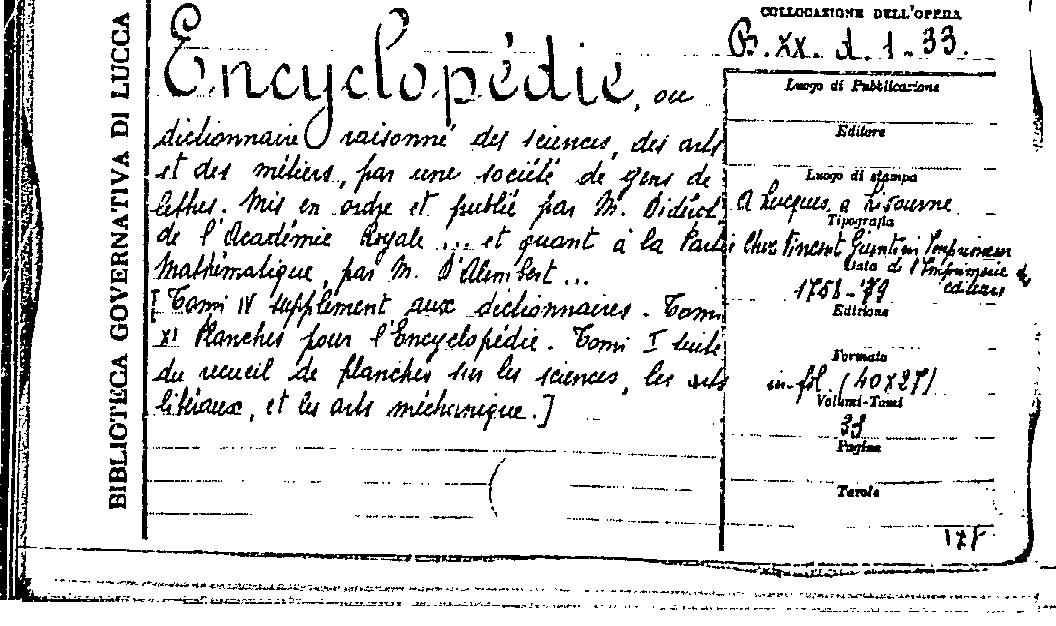 BIBLIOTECA GOVERNATIVA DI LUCCA
COLLOCAZIONE DELL'OPERA
B. xx. d. 1-33.
Encyclopédie, ou
dictionnaire raisonné des sciences, des arts
et des métiers, par une société de gens de
lettres. Mis en ordre et publié par M. Diderot
de l'Académie Royale ... et quant à la Partie
Mathématique, par M. D'Alembert ...
[Tomi IV supplément aux dictionnaires. Tomi
XI Planches pour l'Encyclopédie. Tomi I suite
du recueil de planches sur les sciences, les arts
libéraux, et les arts méchanique.]
Luogo di Pubblicazione
Editore
Luogo di stampa
A Lucques, a Lisourne
Tipografia
Chez Vincent Giuntini Imprimeur
Data de l'Imprimerie des
editeurs
1758-79
Edizione
Formato
in fol. (40x27)
Volumi-Tomi
Pagine
Tavole